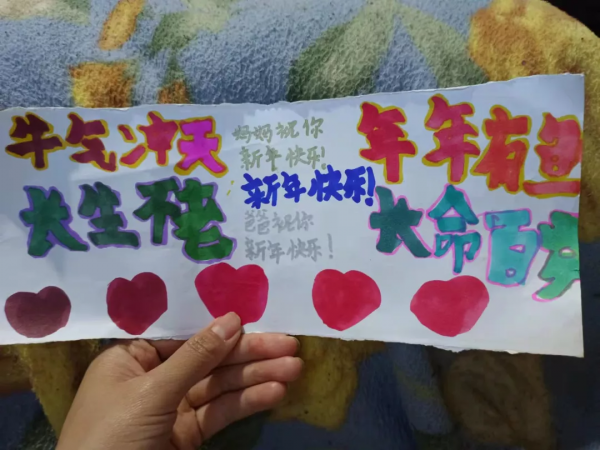 牛气冲天
长生不老
妈妈祝你
新年快乐!
新年快乐!
爸爸祝你
新年快乐!
年年有鱼
长命百岁